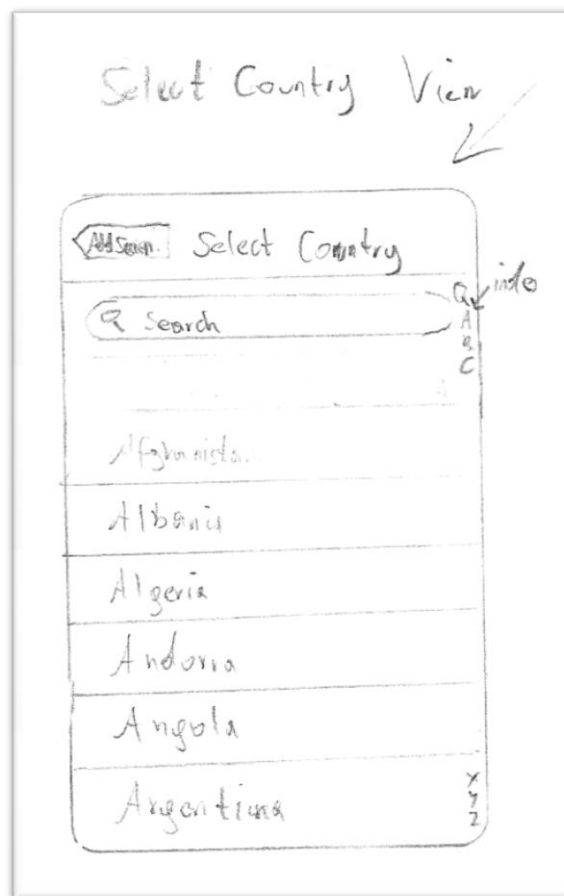 Select Country View
Add Screen. Select Country
Search
Q
A
B
C
Afghanista..
Albania
Algeria
Andorra
Angola
Argentina
X
Y
Z